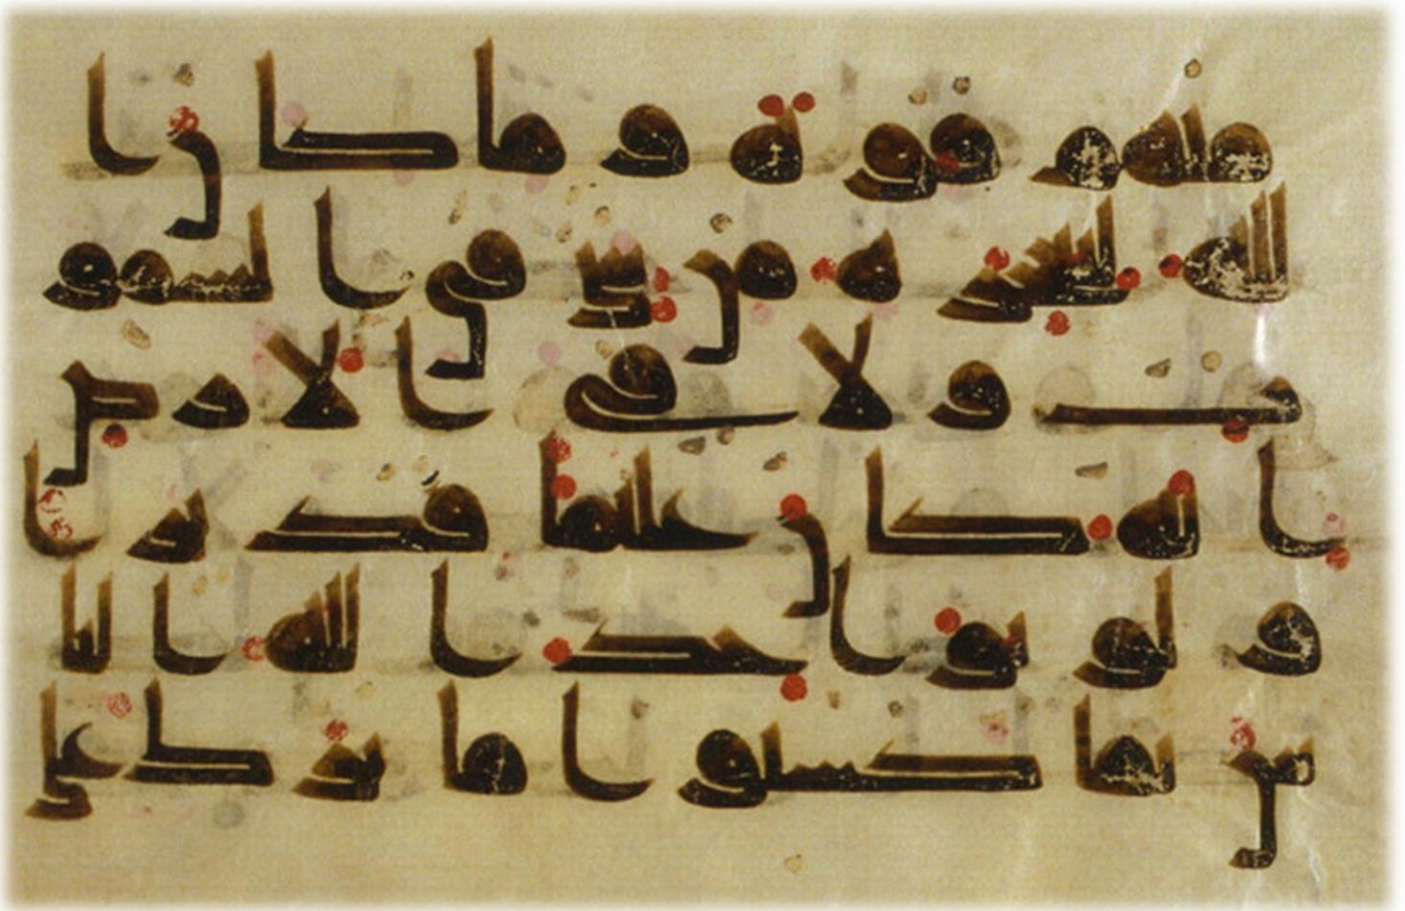 منهم قوة وما كان ا
لله ليعجزه من شى فى السمو
ت ولا فى الارض
انه كان عليما قديرا
ولو يواخذ الله النا
س بما كسبوا ما ترك على